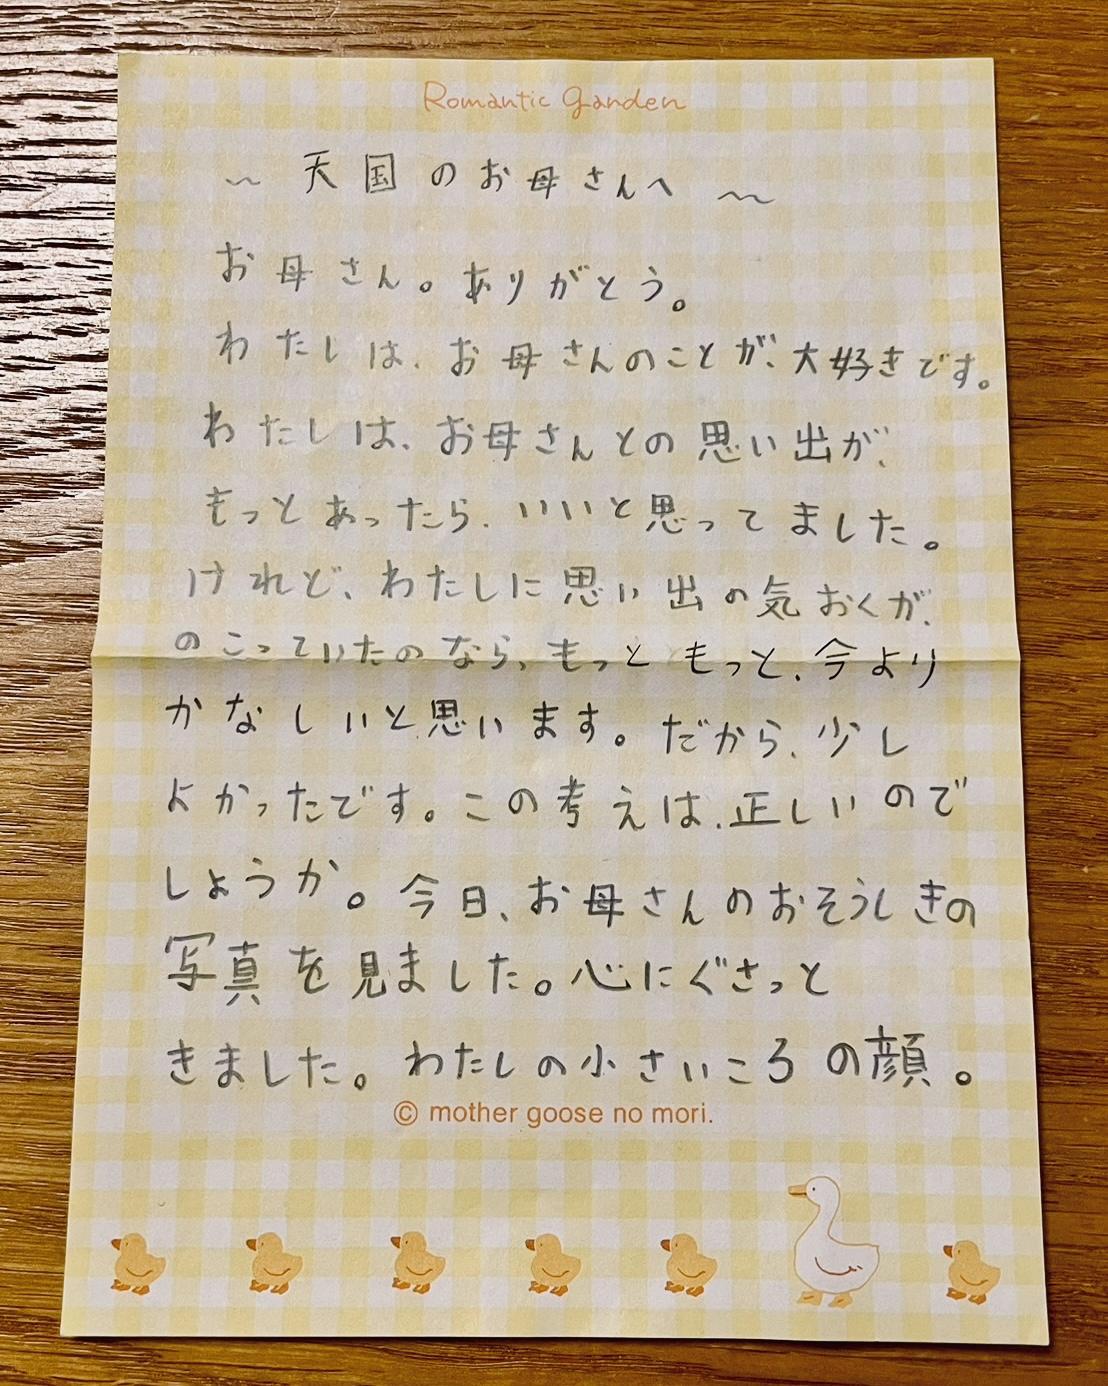 Romantic garden
～ 天国のお母さんへ ～
お母さん。ありがとう。
わたしは、お母さんのことが、大好きです。
わたしは、お母さんとの思い出が、
もっとあったら、いいと思ってました。
けれど、わたしに思い出の気おくが、
のこっていたのなら、もっともっと、今より
かなしいと思います。だから、少し
よかったです。この考えは、正しいので
しょうか。今日、お母さんのおそうしきの
写真を見ました。心にぐさっと
きました。わたしの小さいころの顔。
© mother goose no mori.